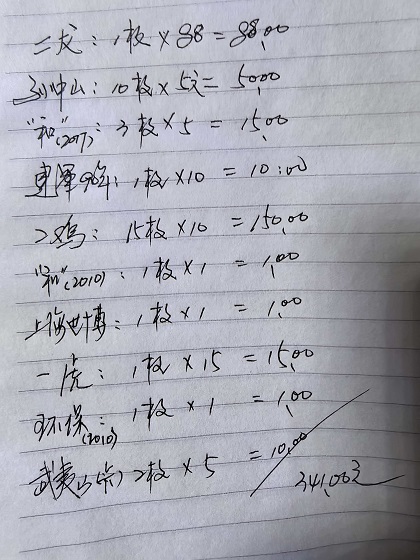 二龙：1枚×88=88.00
孙中山：10枚×5元=50.00
"和"(2017)：3枚×5=15.00
建军90年：1枚×10=10.00
二鸡：15枚×10=150.00
"和"(2010)：1枚×1=1.00
上海世博：1枚×1=1.00
一虎：1枚×15=15.00
环保(2010)：1枚×1=1.00
武夷山(币)2枚×5=10.00
341.00元